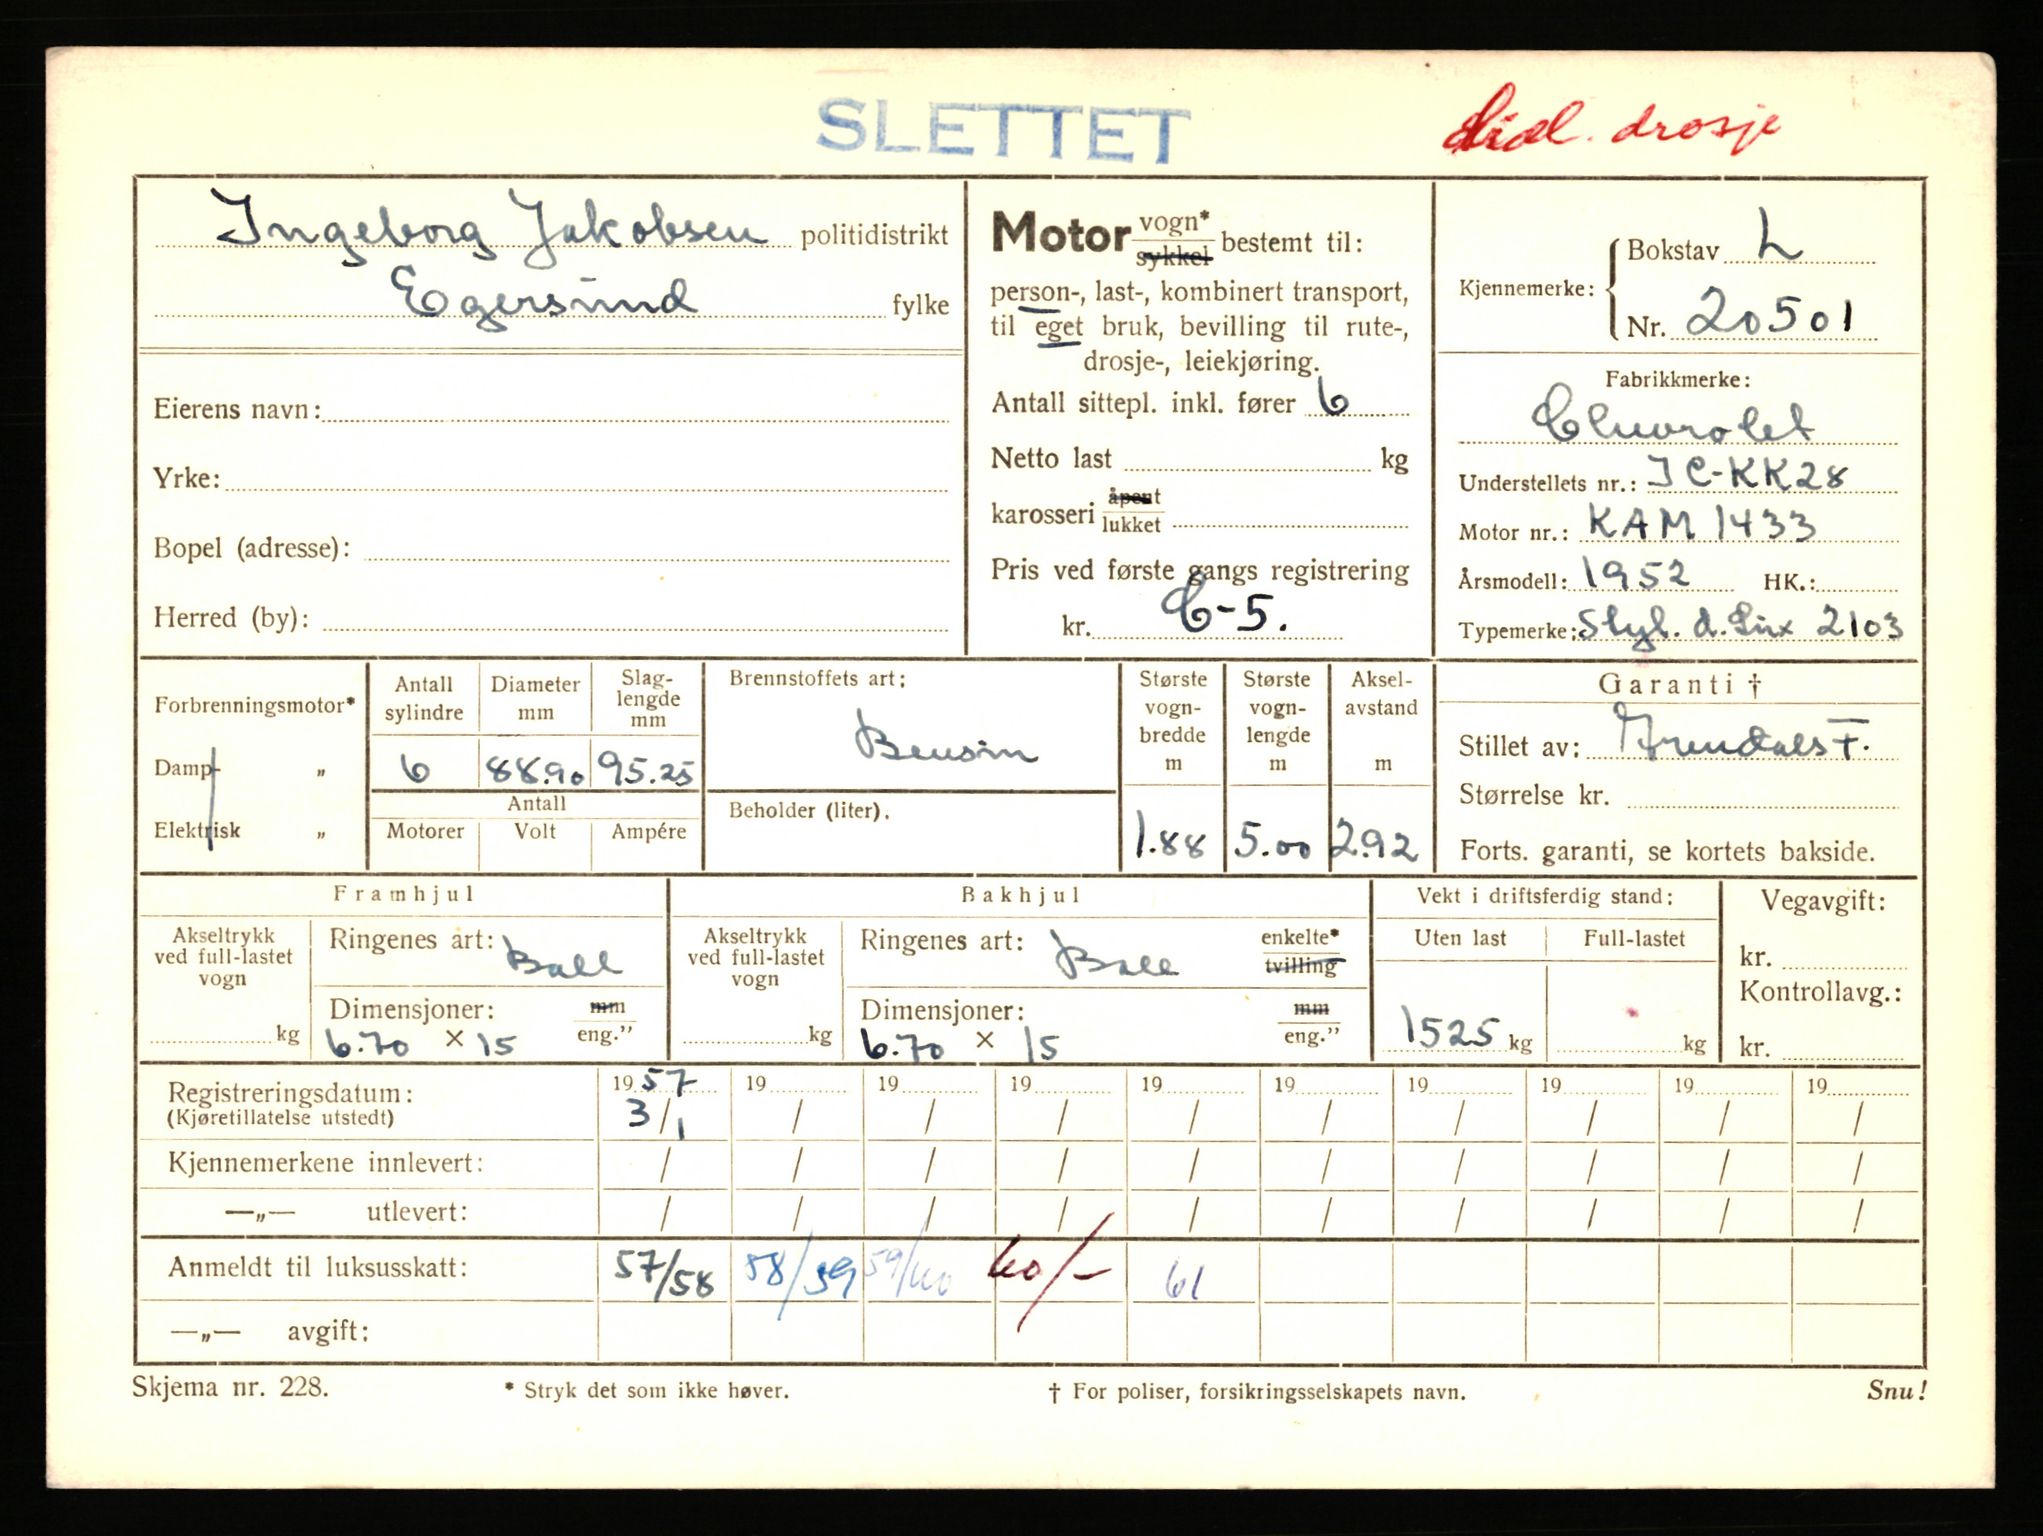 SLETTET
drosje
Ingeborg Jakobsen politidistrikt
Egersund fylke
Eierens navn:
Yrke:
Bopel (adresse):
Herred (by):
Motor vogn* sykkel bestemt til:
person-, last-, kombinert transport,
til eget bruk, bevilling til rute-,
drosje-, leiekjøring.
Antall sittepl. inkl. fører 6
Netto last kg
karosseri åpent lukket
Pris ved første gangs registrering
kr. C-5.
Kjennemerke: Bokstav L
Nr. 20501
Fabrikkmerke:
Chevrolet
Understellets nr.: JC-KK28
Motor nr.: KAM 1433
Årsmodell: 1952 HK.:
Typemerke: Styl. d. Lux 2103
Forbrenningsmotor*
Damp- „
Elektrisk „
Antall sylindre
Diameter mm
Slag-
lengde
mm
6 88.90 95.25
Antall
Motorer Volt Ampére
Brennstoffets art:
Bensin
Beholder (liter).
Største
vogn-
bredde
m
1.88
Største
vogn-
lengde
m
5.00
Aksel-
avstand
m
2.92
Garanti †
Stillet av: F.
Størrelse kr.
Forts. garanti, se kortets bakside.
Framhjul
Akseltrykk
ved full-lastet
vogn
kg
Ringenes art: Ball
Dimensjoner: mm
6.70 × 15 eng.”
Bakhjul
Akseltrykk
ved full-lastet
vogn
kg
Ringenes art: Ball enkelte*
tvilling
Dimensjoner: mm
6.70 × 15 eng.”
Vekt i driftsferdig stand:
Uten last Full-lastet
1525 kg kg
Vegavgift:
kr.
Kontrollavg.:
kr.
Registreringsdatum: 1957 19 19 19 19 19 19 19 19 19
(Kjøretillatelse utstedt) 3/1 / / / / / / / / /
Kjennemerkene innlevert: / / / / / / / / / /
—„— utlevert: / / / / / / / / / /
Anmeldt til luksusskatt: 57/58 58/59 59/60 60/- 61
—„— avgift:
Skjema nr. 228. * Stryk det som ikke høver. † For poliser, forsikringsselskapets navn. Snu!